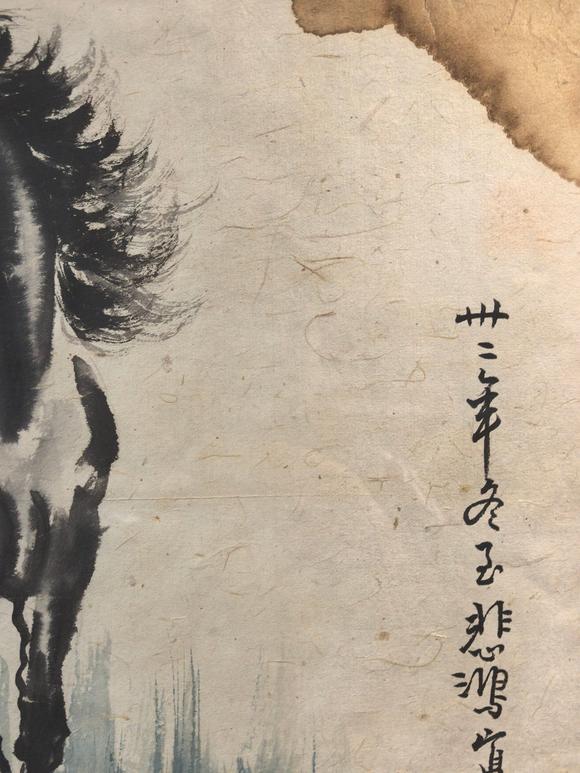 卅二年冬至悲鴻